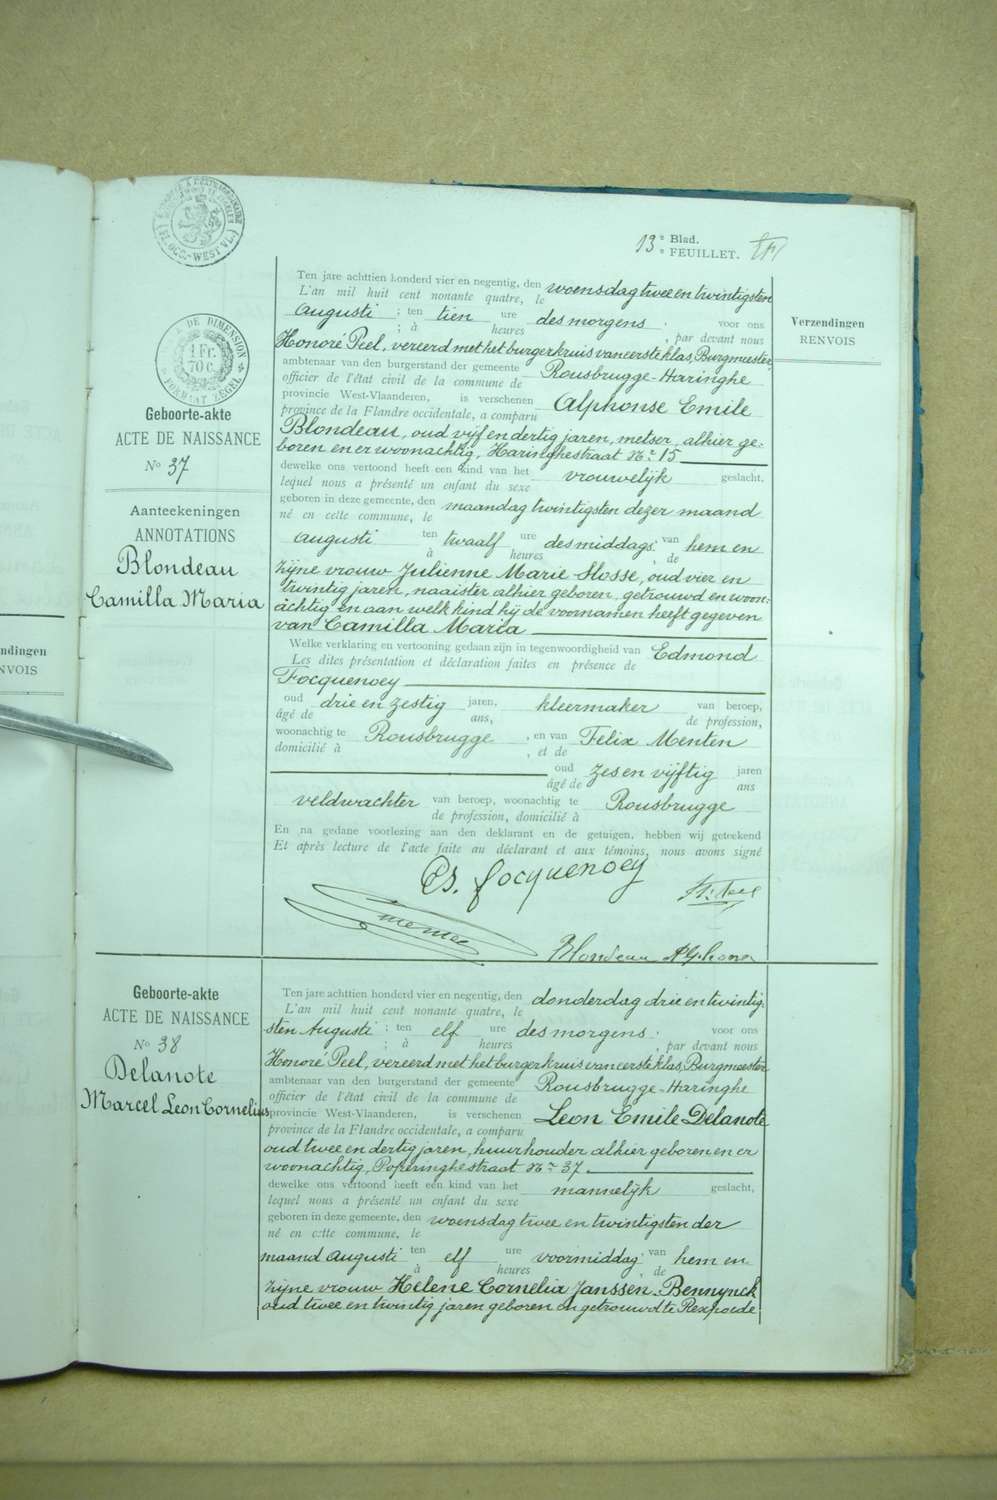 13e Blad.
e FEUILLET.
Verzendingen
RENVOIS
DE DIMENSION
1 Fr.
70 c.
FORMAAT ZEGEL
Geboorte-akte
ACTE DE NAISSANCE
No 37
Aanteekeningen
ANNOTATIONS
Blondeau
Camilla Maria
ndingen
NVOIS
Ten jare achttien honderd vier en negentig, den woensdag twee en twintigsten
L'an mil huit cent nonante quatre, le
Augusti ; ten tien ure des morgens voor ons
; à heures , par devant nous
Honoré Peel, vereerd met het burgerkruis van eerste klas, Burgmeester,
ambtenaar van den burgerstand der gemeente Rousbrugge-Haringhe
officier de l'état civil de la commune de
provincie West-Vlaanderen, is verschenen Alphonse Emile
province de la Flandre occidentale, a comparu
Blondeau, oud vijf en dertig jaren, metser, alhier ge-
boren en er woonachtig, Haringhestraat No 15
dewelke ons vertoond heeft een kind van het vrouwelijk geslacht,
lequel nous a présenté un enfant du sexe
geboren in deze gemeente, den maandag twintigsten dezer maand
né en cette commune, le
Augusti ten twaalf ure des middags, van hem en
à heures , de
zijne vrouw Julienne Marie Slosse, oud vier en
twintig jaren, naaister alhier geboren, getrouwd en woon-
achtig en aan welk kind hij de voornamen heeft gegeven
van Camilla Maria
Welke verklaring en vertooning gedaan zijn in tegenwoordigheid van Edmond
Les dites présentation et déclaration faites en présence de
Focquenoey
oud drie en zestig jaren, kleermaker van beroep,
âgé de ans, de profession,
woonachtig te Rousbrugge , en van Felix Menten
domicilié à , et de
oud zes en vijftig jaren
âgé de ans
veldwachter van beroep, woonachtig te Rousbrugge
de profession, domicilié à
En na gedane voorlezing aan den deklarant en de getuigen, hebben wij geteekend
Et après lecture de l'acte faite au déclarant et aux témoins, nous avons signé
focquenoey
Blondeau Alphonse
Geboorte-akte
ACTE DE NAISSANCE
No 38
Delanote
Marcel Leon Cornelius
Ten jare achttien honderd vier en negentig, den donderdag drie en twintig-
L'an mil huit cent nonante quatre, le
sten Augusti ; ten elf ure des morgens voor ons
; à heures , par devant nous
Honoré Peel, vereerd met het burgerkruis van eerste klas, Burgmeester
ambtenaar van den burgerstand der gemeente Rousbrugge-Haringhe
officier de l'état civil de la commune de
provincie West-Vlaanderen, is verschenen Leon Emile Delanote
province de la Flandre occidentale, a comparu
oud twee en dertig jaren, huurhouder alhier geboren en er
woonachtig, Poperinghestraat No 37
dewelke ons vertoond heeft een kind van het mannelijk geslacht,
lequel nous a présenté un enfant du sexe
geboren in deze gemeente, den woensdag twee en twintigsten der
né en cette commune, le
maand Augusti ten elf ure voormiddag van hem en
à heures , de
zijne vrouw Helene Cornelia Janssen-Bennynck
oud twee en twintig jaren geboren en getrouwd te Rexpoede